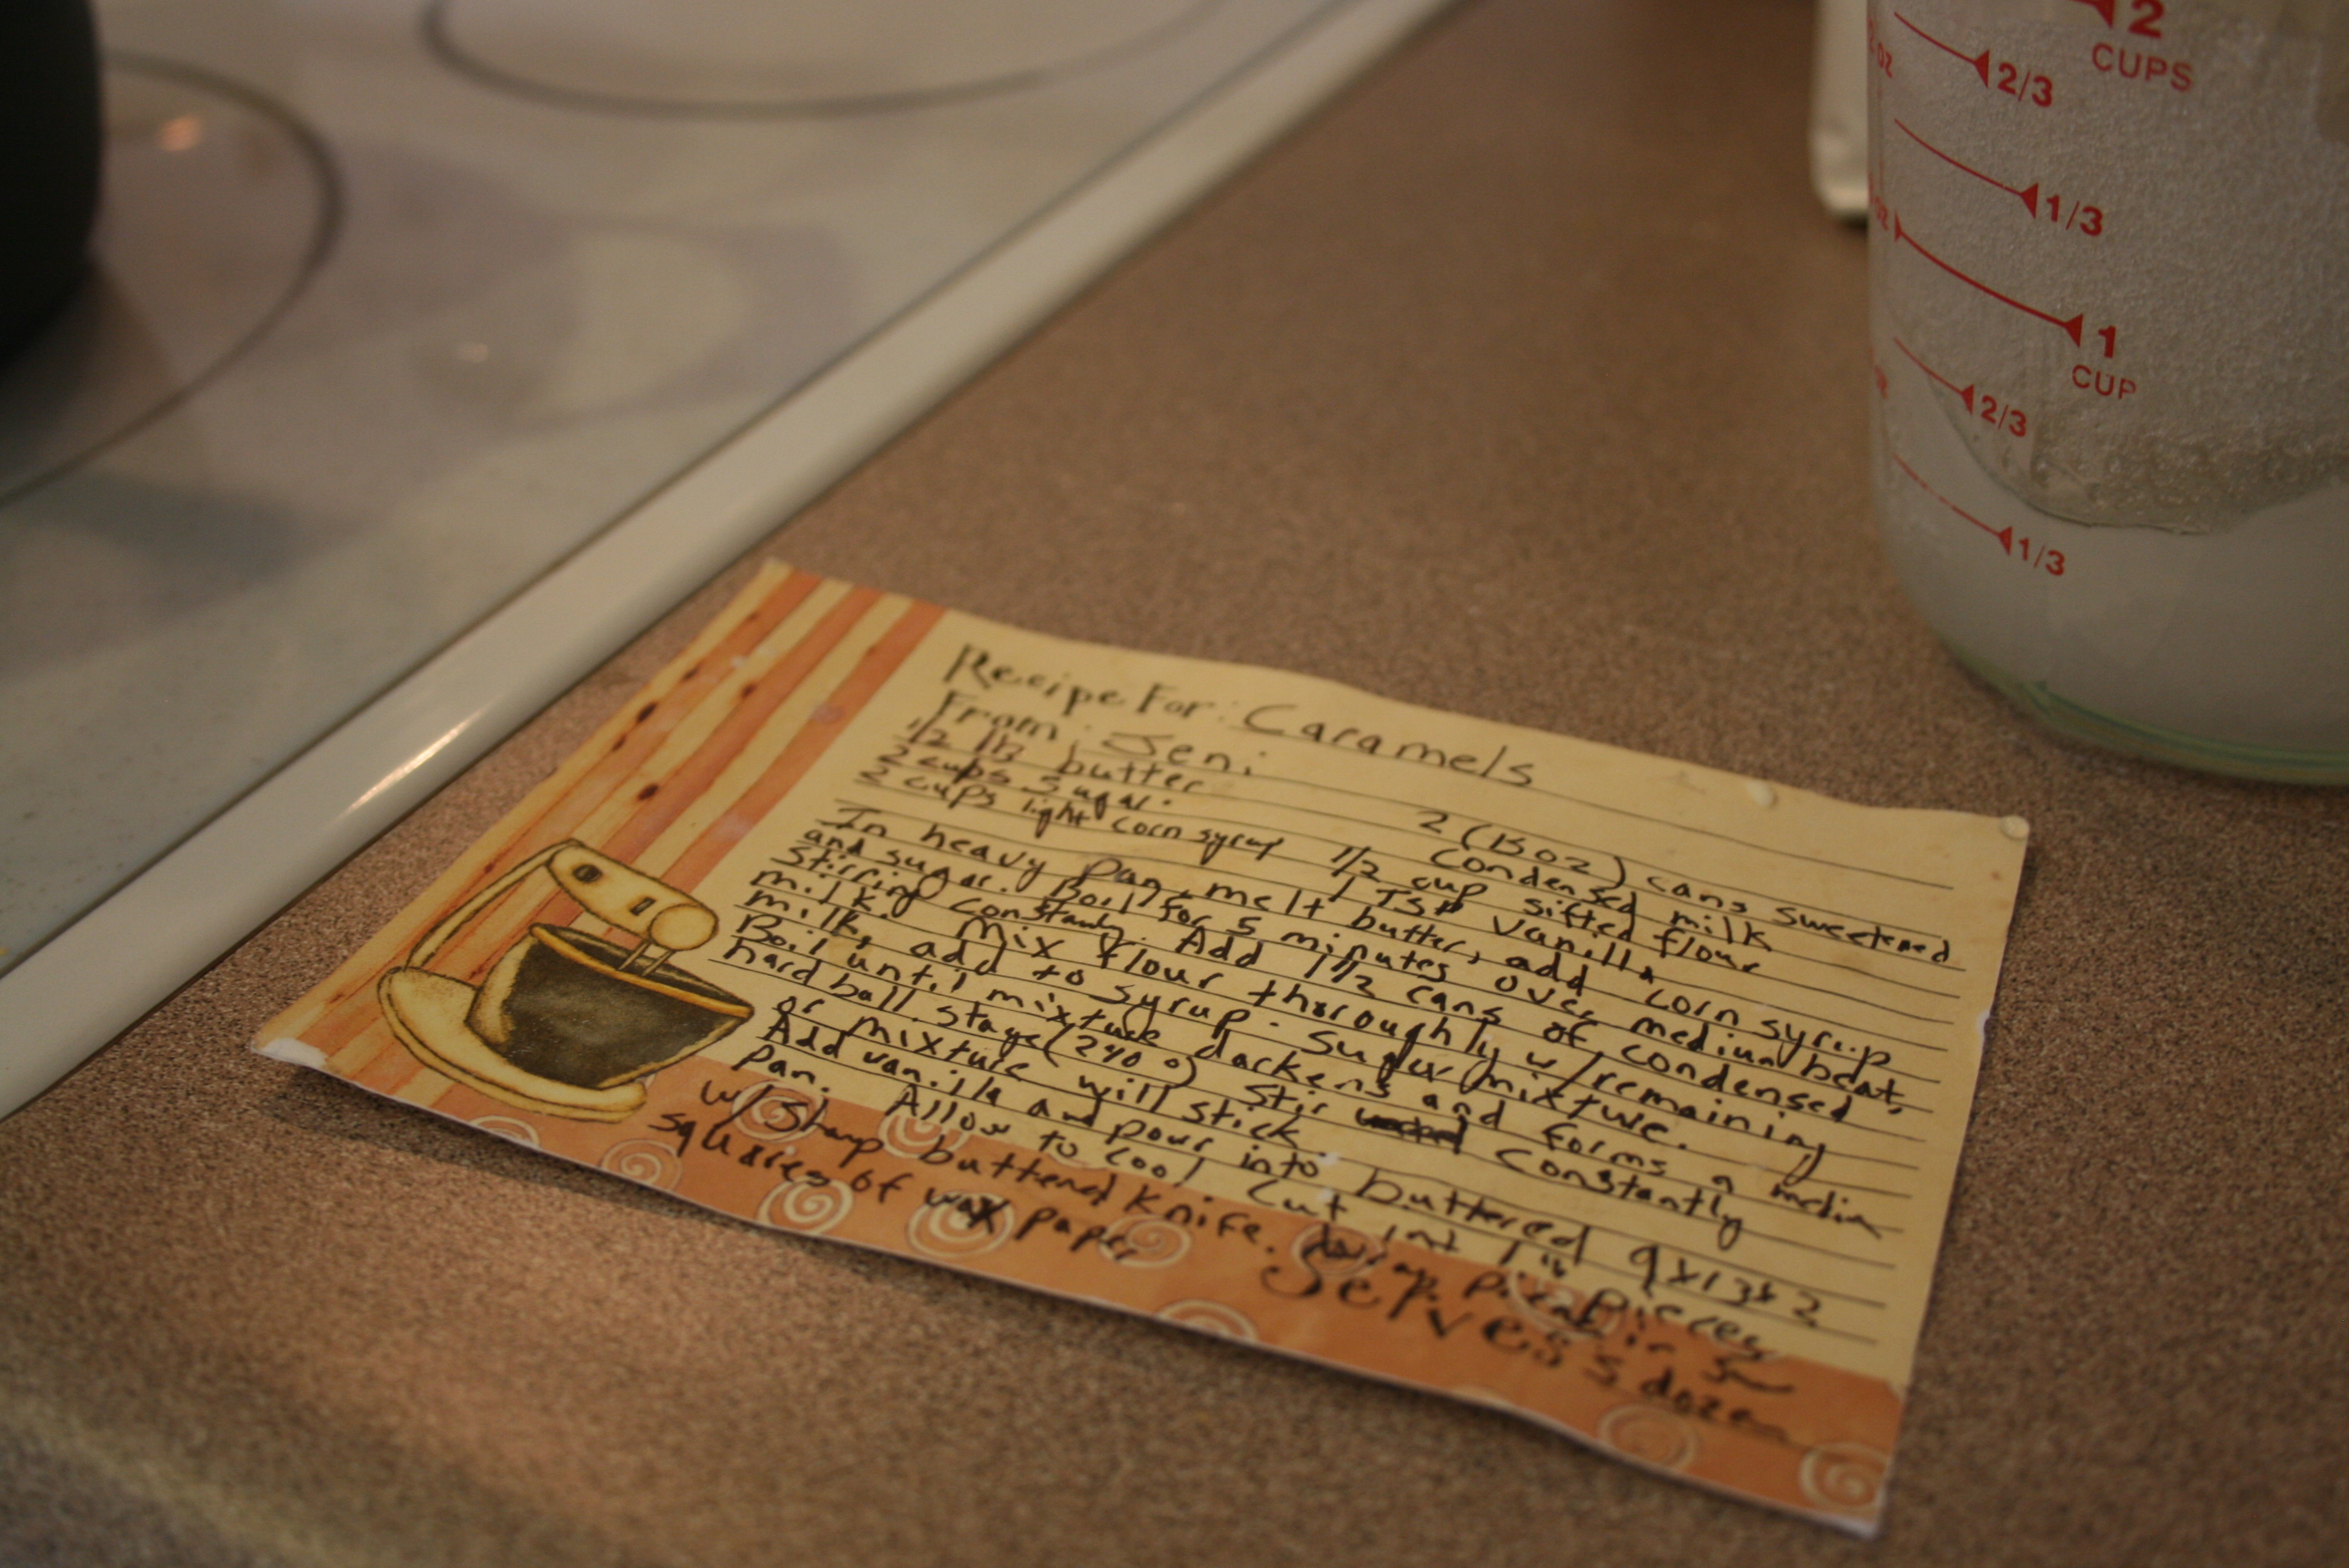 Recipe For: Caramels
From: Jeni
1/2 lb butter
2 cups sugar
2 cups light corn syrup
2 (15 oz) cans sweetened
condensed milk
1/2 cup sifted flour
1 Tsp vanilla
In heavy pan, melt butter, add corn syrup
and sugar. Boil for 5 minutes over medium heat,
stirring constantly. Add 1 1/2 cans of condensed
milk. Mix flour thoroughly w/remaining
milk, add to syrup. Sugar mixture.
Boil until mixture darkens and forms a medium
hard ball stage (240°) Stir constantly
or mixture will stick
Add vanilla and pour into buttered 9x13x2
pan. Allow to cool cut into 1in pieces
w/sharp buttered knife. Wrap in
squares of wax paper
Serves 5 dozen
2
CUPS
2/3
1/3
1
CUP
2/3
1/3
oz
oz